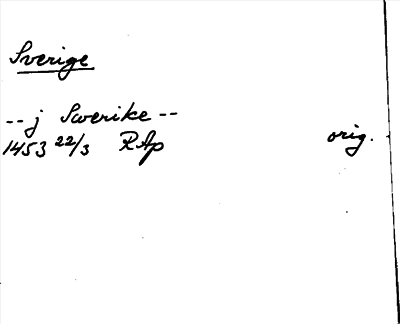 Sverige
-- j Swerike --
1453 22/3 RAp orig.